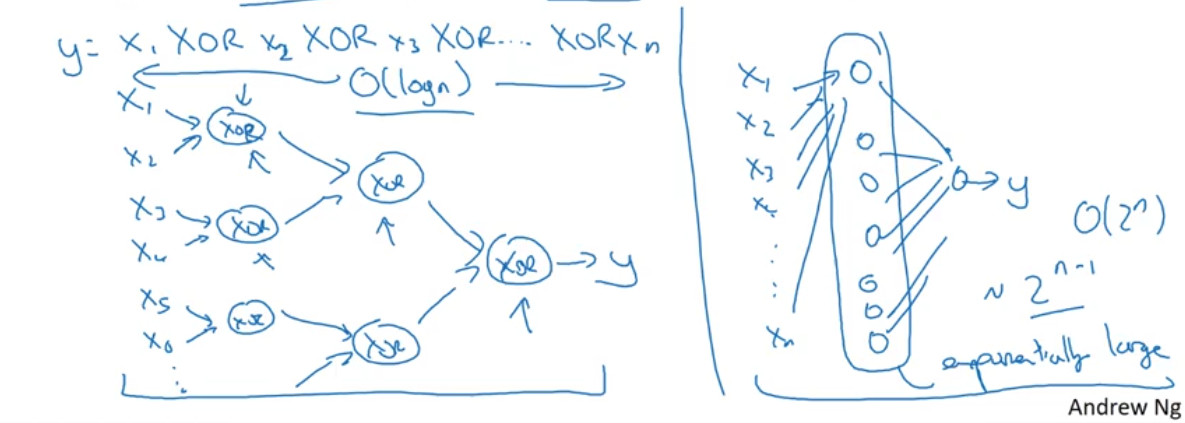 y= x₁ XOR x₂ XOR x₃ XOR.... XOR xₙ
O(logn)
x₁
XOR
x₂
XOR
x₃
XOR
x₄
XOR
y
x₅
XOR
x₆
XOR
⋮
x₁
x₂
x₃
x₄
⋮
xₙ
y
O(2ⁿ)
~ 2ⁿ⁻¹
exponentially large
Andrew Ng